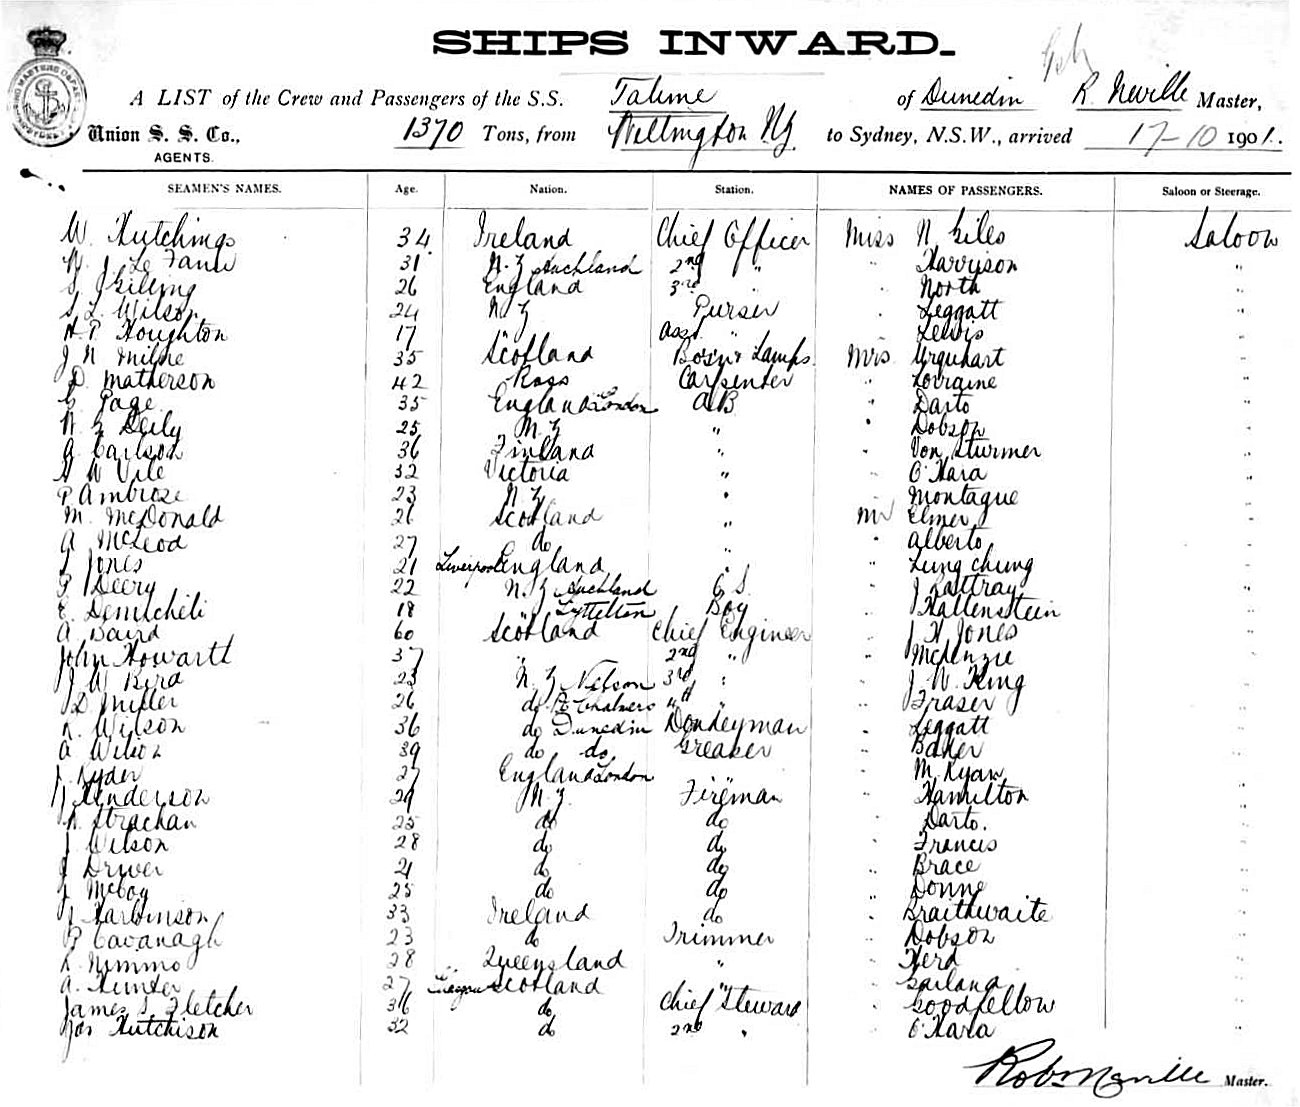 SHIPS INWARD.
A LIST of the Crew and Passengers of the S.S. Talune of Dunedin R. Neville Master,
Union S. S. Co., 1370 Tons, from Wellington NZ. to Sydney, N.S.W., arrived 17-10 1901.
AGENTS.
SEAMEN'S NAMES. Age. Nation. Station. NAMES OF PASSENGERS. Saloon or Steerage.
W. Hutchings 34 Ireland Chief Officer Miss N Giles Saloon
Le Fanu 31 N.Z Auckland 2nd " " Harrison "
S J Gilling 26 England 3rd " North "
S L. Wilson 24 N Z Purser " Leggatt "
H. P. Houghton 17 " Asst " " Lewis "
J N Milne 35 Scotland Bosn & Lamps Mrs Urquhart "
D. Matherson 42 Ross Carpenter " Lorraine "
G. Page 35 England London AB " Darto "
25 N.Z " " Dobson "
A Carlson 36 Finland " " Von Sturmer "
G W Vile 32 Victoria " " O'Hara "
P Ambrose 23 N.Z " " Montague "
M. McDonald 26 Scotland " Mr Elmer "
A McLeod 27 do " " Alberto "
J Jones 21 Liverpool England " " Lung Chung "
P Deery 22 N.Z Auckland O.S. " J Rattray "
E. Demicheli 18 " Lyttelton Boy " Hallenstein "
A Baird 60 Scotland Chief Engineer " J H Jones "
John Howarth 37 " 2nd " " McKenzie "
J W Bird 23 N. Z Nelson 3rd " " J. W. King "
D Miller 26 do Pt Chalmers " " Fraser "
R. Wilson 36 do Dunedin Donkeyman " Leggatt "
A Wilson 39 do do Greaser " Baker "
J. Ryder 27 England London " " M. Ryan "
J Henderson 29 N.Z. Fireman " Hamilton "
R Strachan 25 do do " Darto. "
J Wilson 28 do do " Francis "
J Driver 21 do do " Brace "
J McCoy 25 do do " Donne "
J Harbinson 33 Ireland do " Braithwaite "
P Cavanagh 23 do Trimmer " Dobson "
R Nimmo 28 Queensland " " Herd "
A. Hunter 27 Glasgow Scotland " " Garland "
James S. Fletcher 36 do Chief Steward " Goodfellow "
Jas Hutchison 32 do 2nd " " O'Hara "
Robt Neville Master.